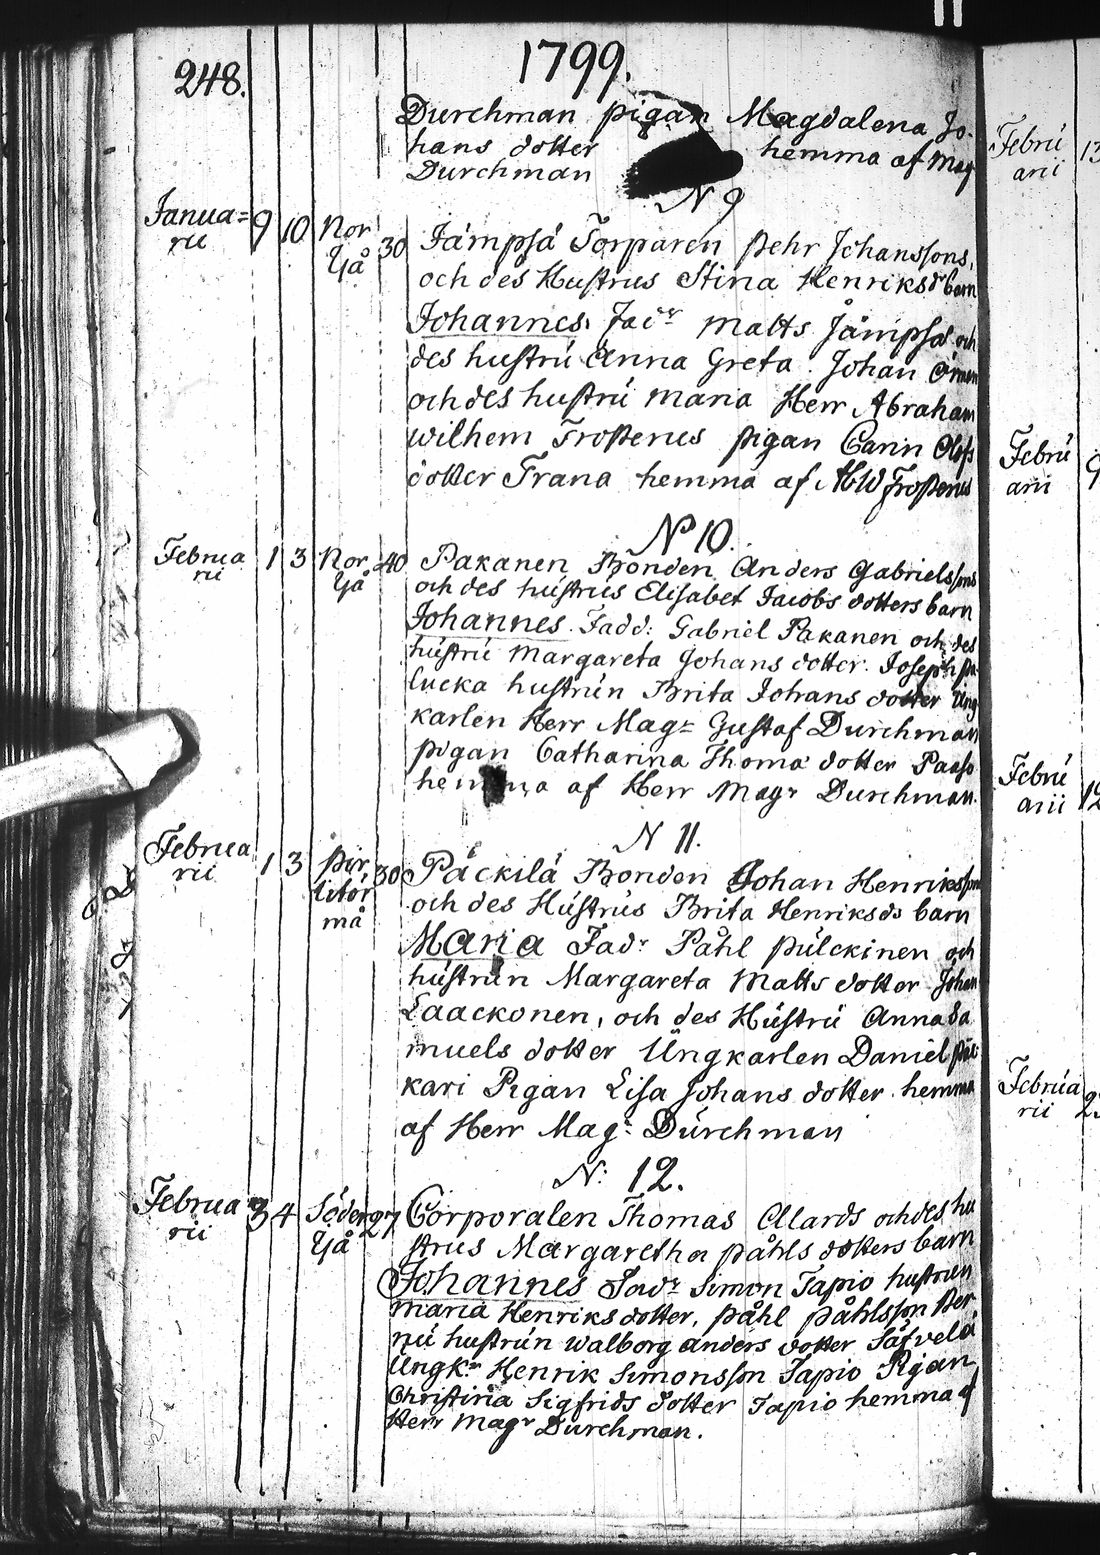 248.
1799.
Durchman pigan Magdalena Jo-
hans dotter hemma af Mag
Durchman
N 9
Janua= 9 10 Nor 30 Jämpsä Torparen Pehr Johanssons,
rii Yå och des Hustrus Stina Henriksdr barn
Johannes, Fadr Matts Jämpsä och
des hustrú Anna Greta. Johan
och des hustrú Maria Herr Abraham
Wilhem Frosterus pigan Carin Olofs
dotter Frana hemma af AbW Frosterus
N 10.
Februa 1 3 Nor 40 Pakanen Bonden Anders Gabrielssons
rii Yå och des hústrus Elisabet Jacobs dotters barn
Johannes Fadd: Gabriel Pakanen och des
hústrú Margareta Johans dotter. Joseph Pu
lucka hustrún Brita Johans dotter Ung
karlen Herr Magr Gustaf Durchman
pigan Catharina Thoma dotter Paaso
hemma af Herr Magr Durchman.
N 11.
Februa 1 3 Pir 30 Päckilä Bonden Johan Henriksson
rii litör och des Hústrús Brita Henriksdr barn
må Maria Fadr Påhl Púlckinen och
hústrún Margareta Matts dotter Johan
Laackonen, och des Hústrú Anna Sa
muels dotter Ungkarlen Daniel
kari Pigan Lisa Johans dotter hemma
af Herr Magr Dúrchman
N: 12.
Februa 3 4 Söder 27 Corporalen Thomas Allards och des hu
rii Yå strus Margaretha Påhls dotters barn
Johannes Fadr Simon Tapio hustrun
Maria Henriks dotter, Påhl Påhlsson Ker
nú hustrún Walborg Anders dotter Säfvelä
Ungkr Henrik Simonsson Tapio Pigan
Christina Sigfrids dotter Tapio hemma af
Herr Magr Durchman.
Febrú 13
arii
Febrú 9
arii
Febrú 12
arii
Febrúa
rii